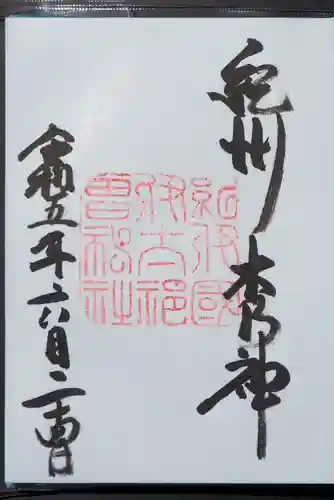 紀州 木の神
紀伊國
伊太祁
曽神社
令和五年六月二十四日